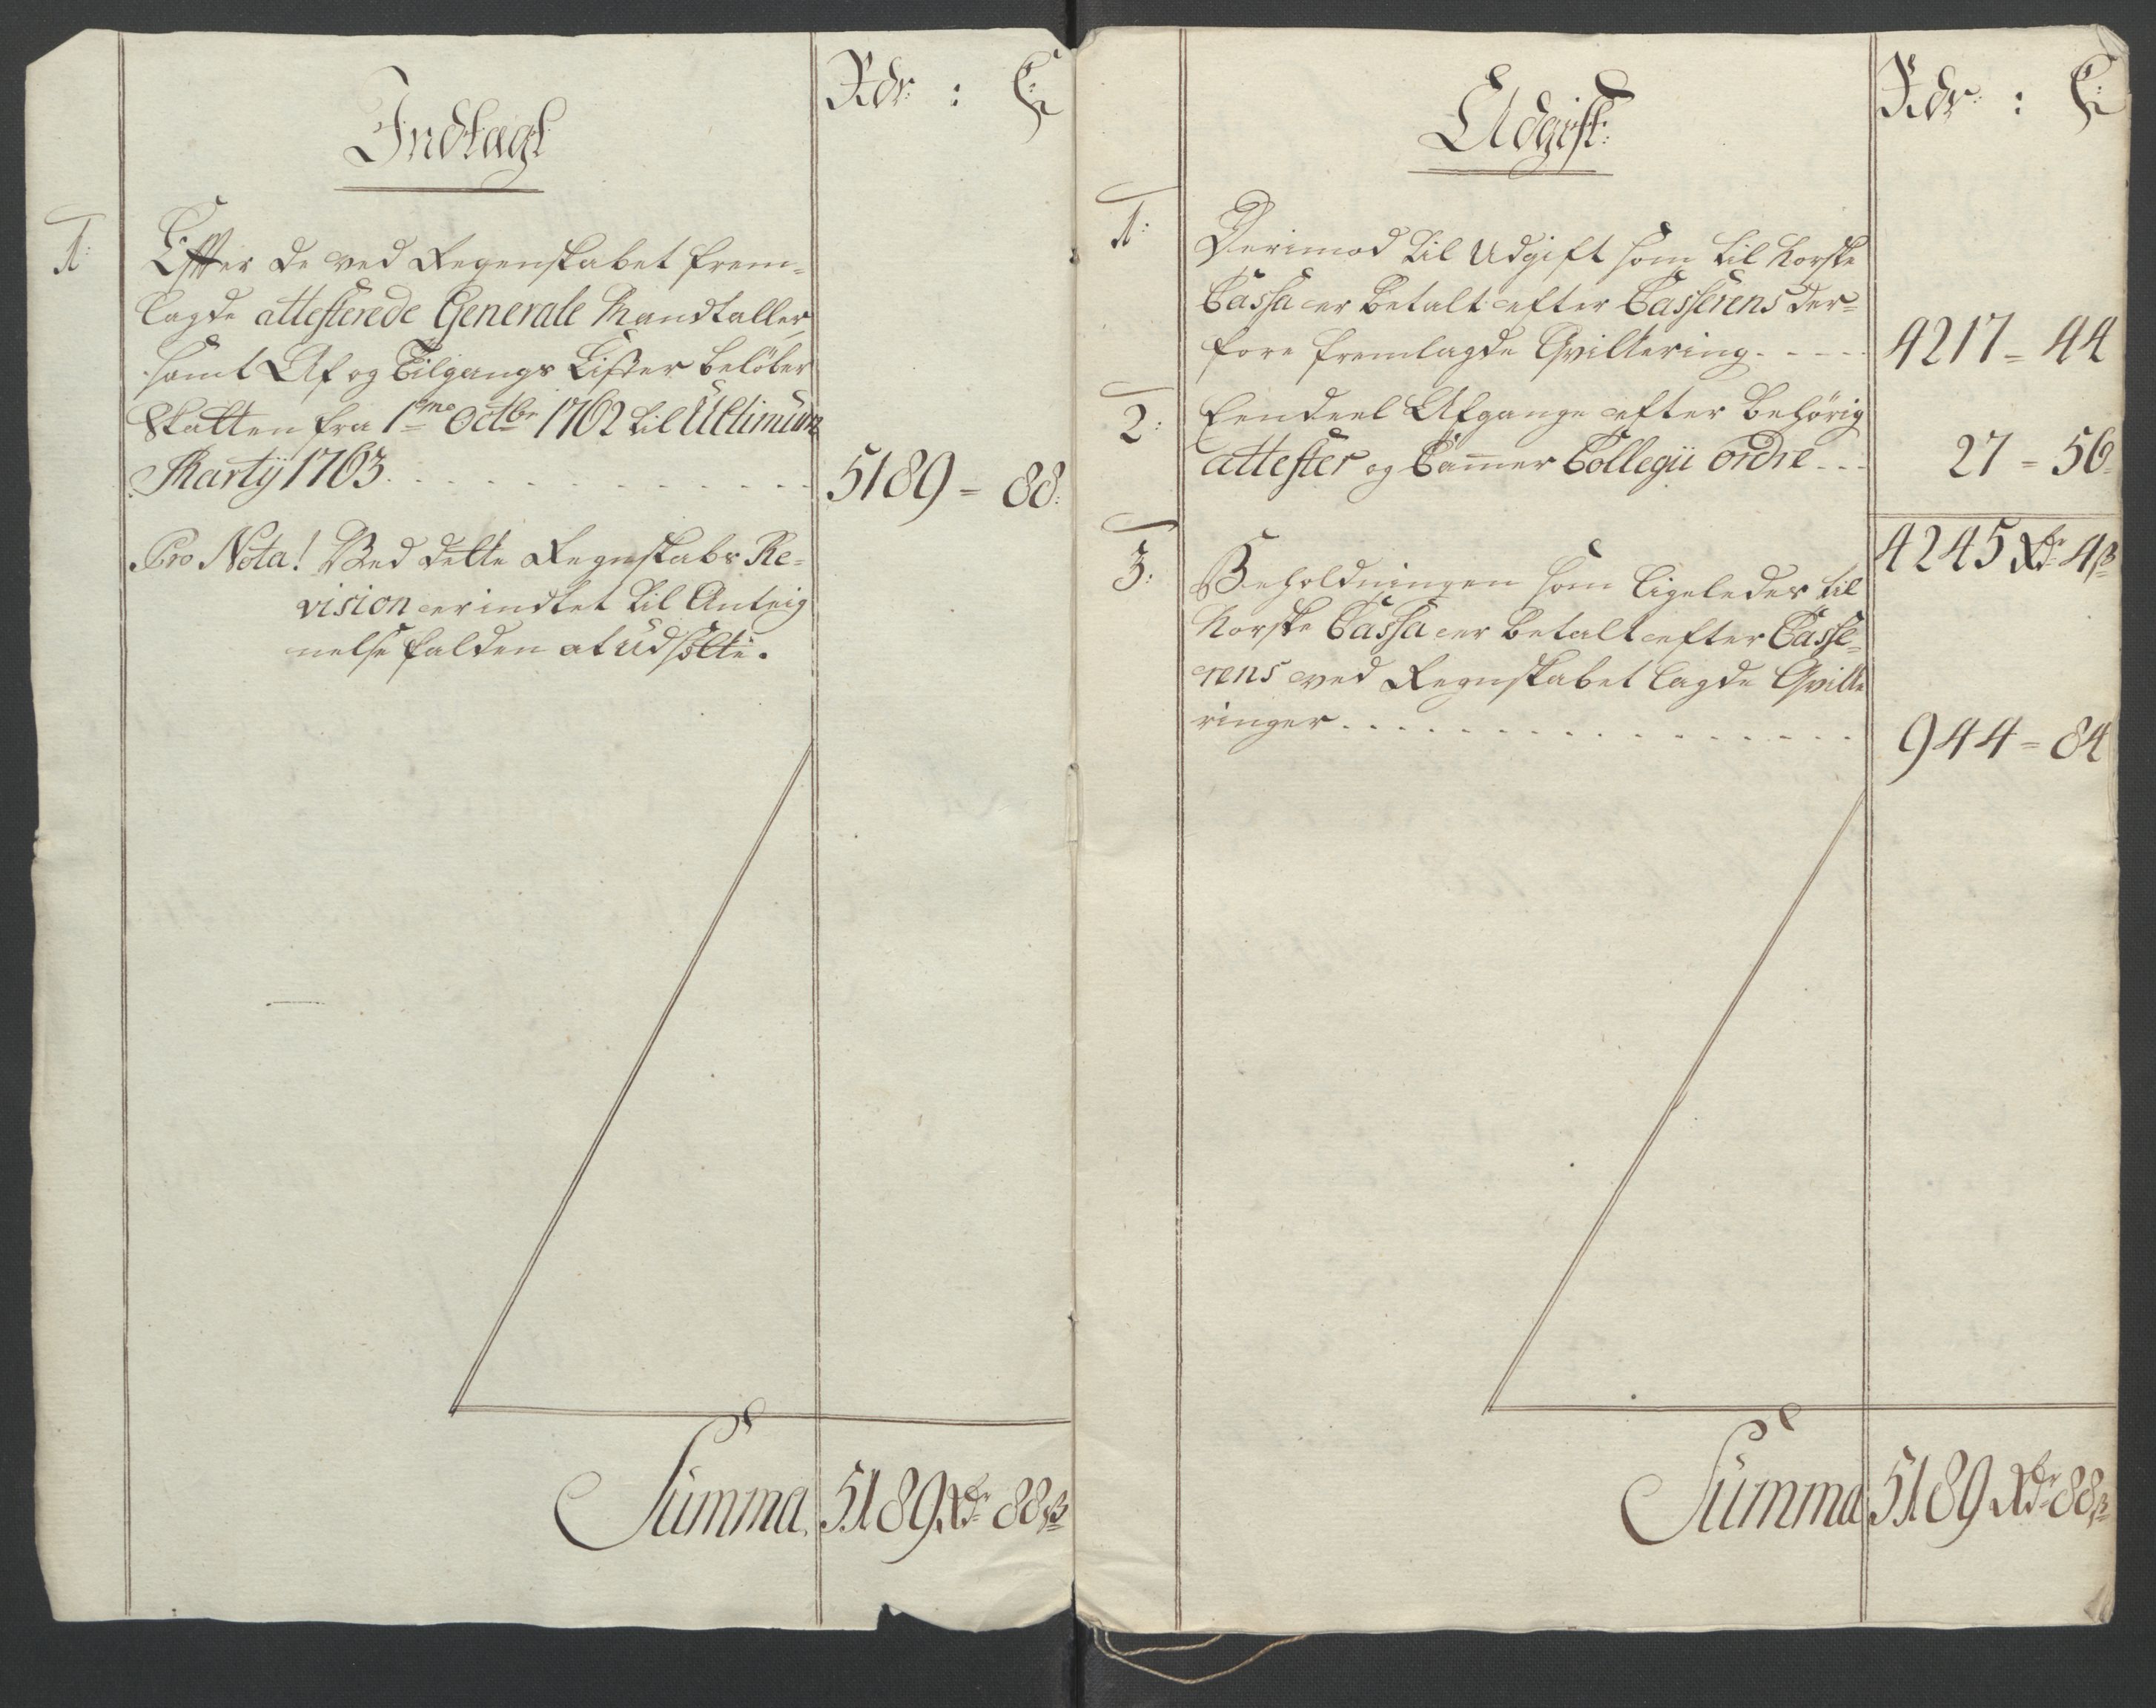 Indtagt
Rdr : ß
1: Efter de ved Regenskabet frem-
lagde attesterede Generale Mandtaller
samt Af og Tilgangs Lister beløber
Skatten fra 1me Octbr 1762 til Ultimum
Marty 1763. 5189 = 88:
Pro Nota! Ved dette Regnskabs Re-
vision er indtet til Anteig
nelse falden at udsætte.
Summa. 5189 Rdr 88 ß
Udgift:
Rdr : ß
1: Derimod til Udgift som til Norske
Cassa er betalt efter Casserens der-
fore fremlagde Qvittering. 4217 = 44
2: Eendeel Afgange efter behørig
attester og Cammer Collegii ordre 27 = 56
4245 Rdr 4 ß
3: Beholdningen som ligeledes til
Norske Cassa er betalt efter Casse-
rens ved Regnskabet lagde Qvitte
ringer. 944 = 84
Summa 5189 Rdr 88 ß